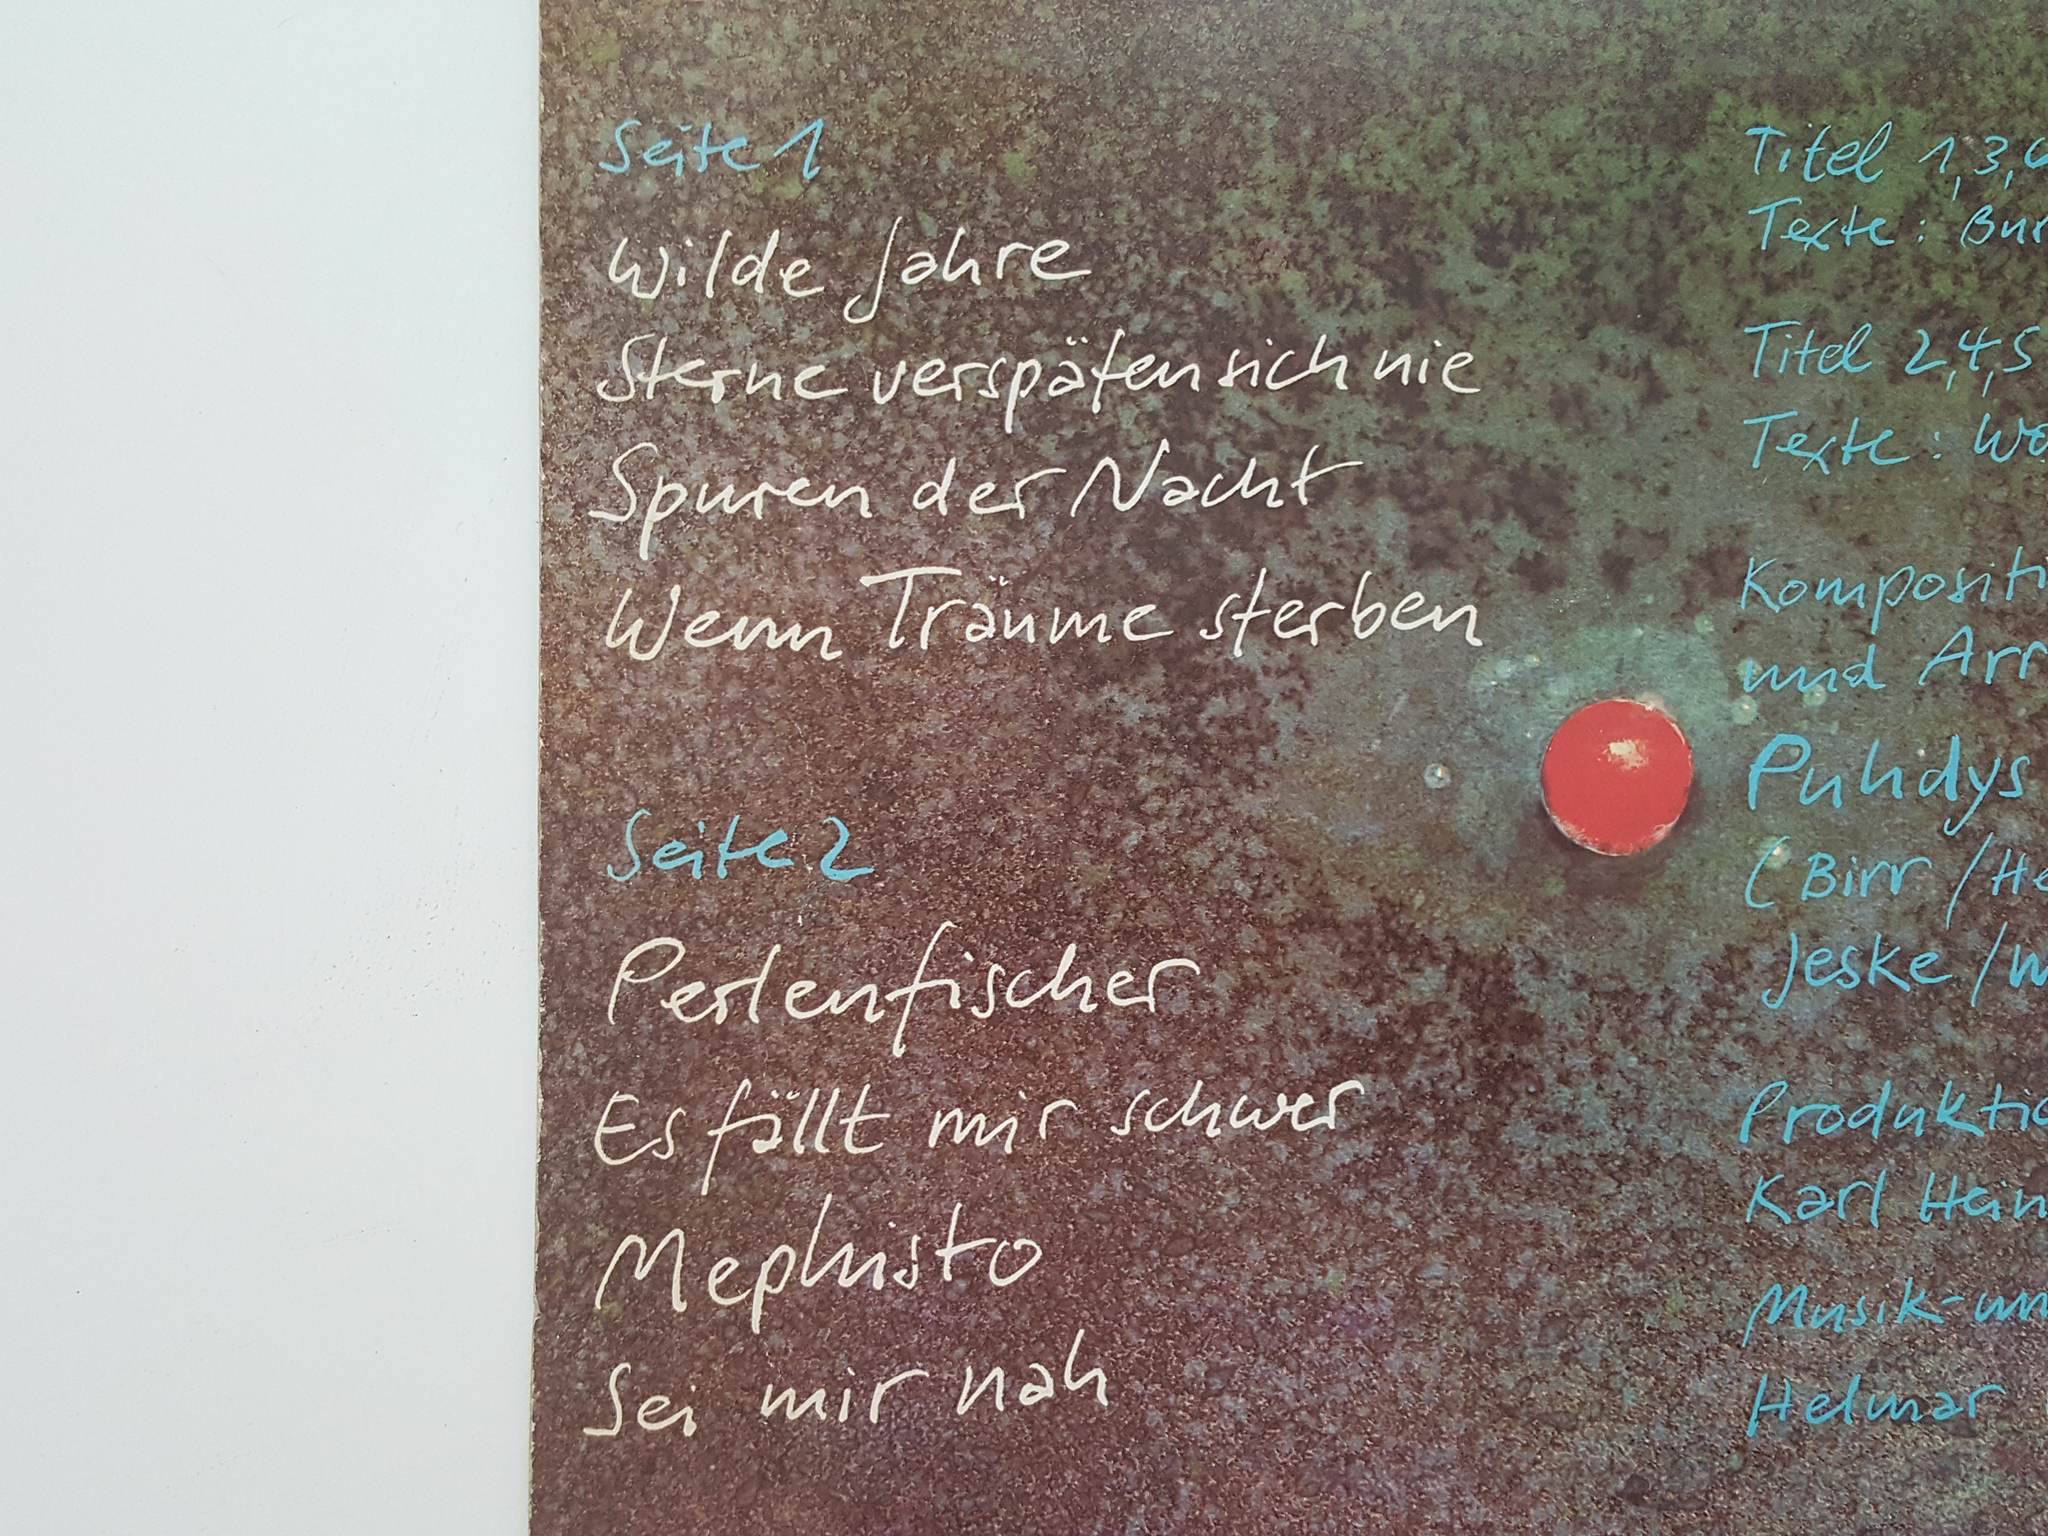 Seite 1
Wilde Jahre
Sterne verspäten sich nie
Spuren der Nacht
Wenn Träume sterben
Seite 2
Perlenfischer
Es fällt mir schwer
Mephisto
Sei mir nah
Titel 1,3,
Texte:
Titel 2,4,5
Texte:
und
Puhdys
(Birr /
Jeske /
Karl
Helmar